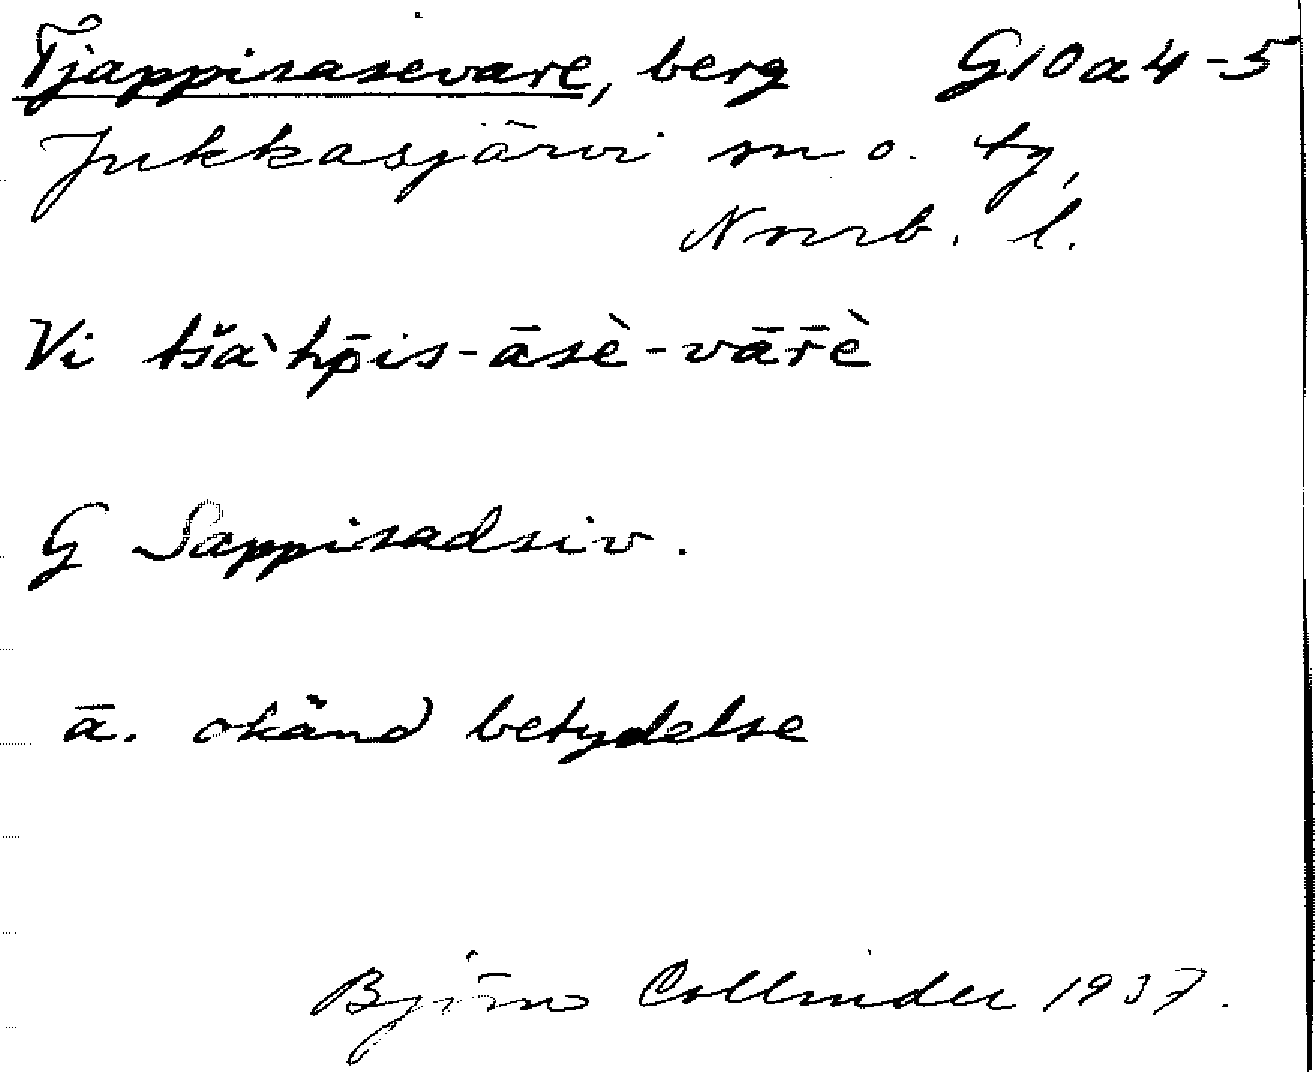 Tjappisasevare, berg G10a4-5
Jukkasjärvi sn o. tg,
Norrb. l.
Vi tšàˋhp̄is-āsè-vār̄è
G Sappisadsiv.
ā. okänd betydelse
Björn Collinder 1937.